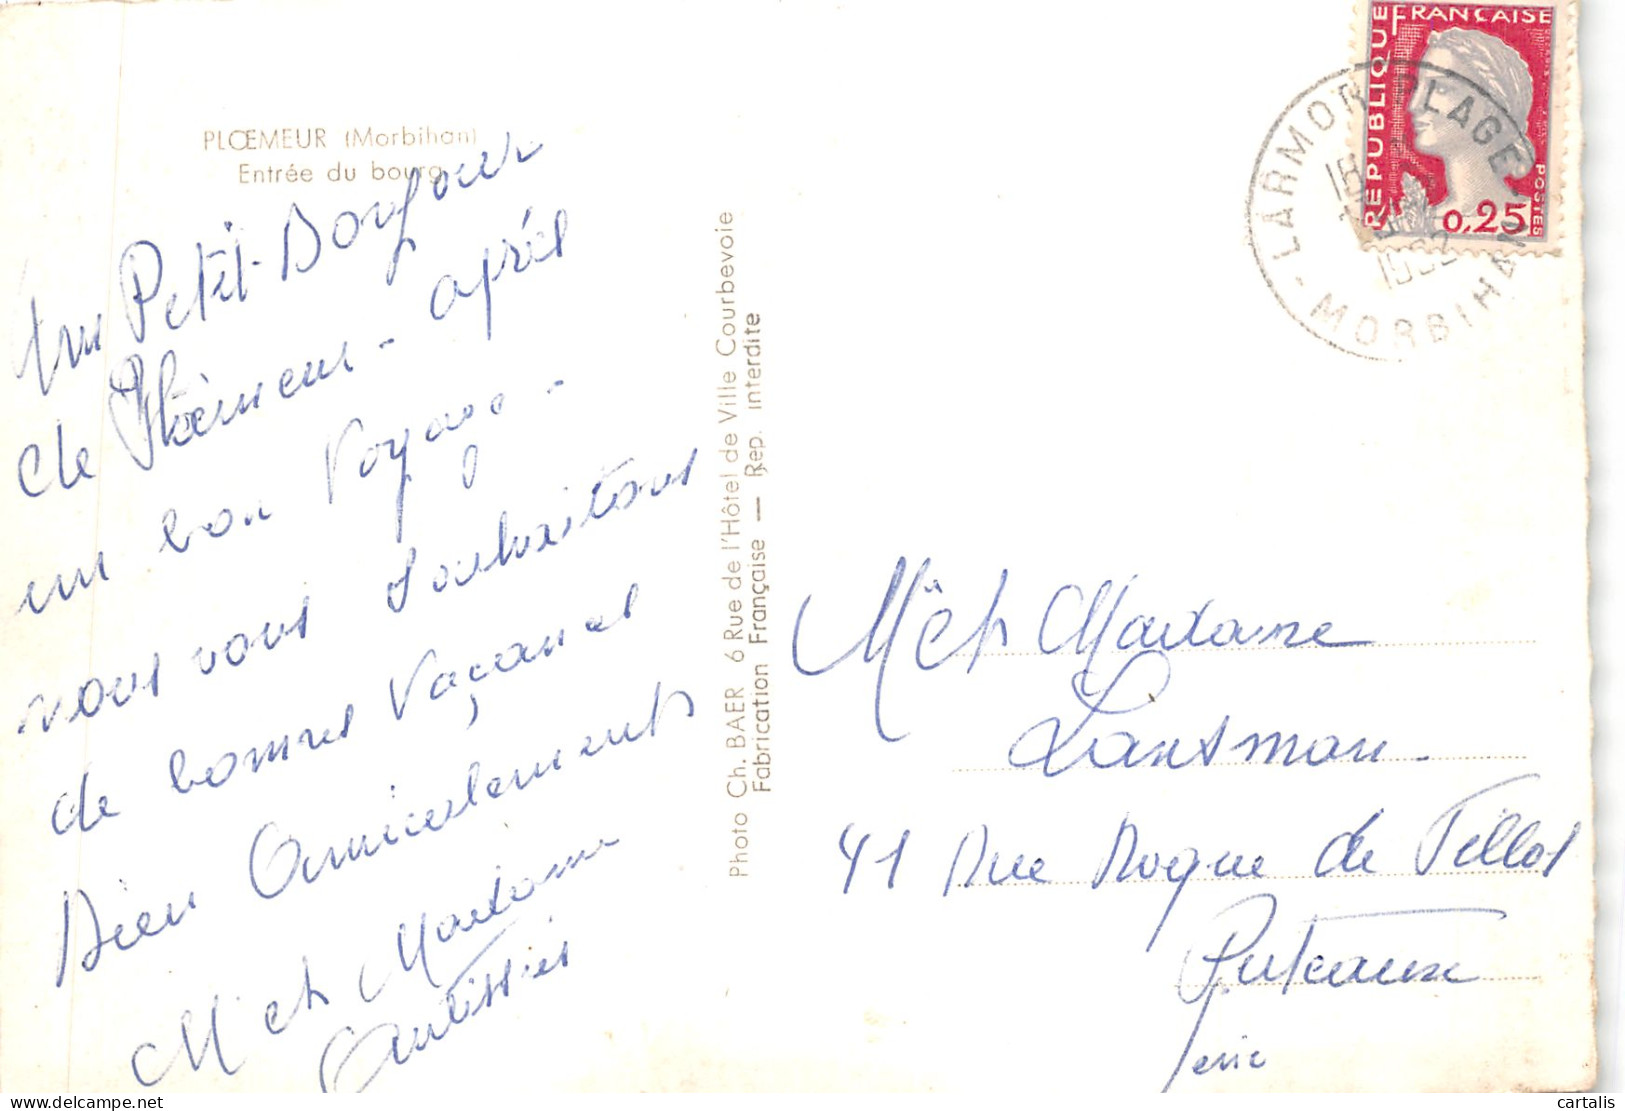 PLŒMEUR (Morbihan)
Entrée du bourg
un Petit Bonjour
de Ploemeur - après
un bon Voyage -
nous vous souhaitons
de bonnes Vaçances
Bien Amicalement
M et Madame
Photo Ch. BAER 6 Rue de l'Hôtel de Ville Courbevoie
Fabrication Française — Rep. interdite
REPUBLIQUE FRANÇAISE
POSTES
0,25
LARMOR-PLAGE
18
1962
- MORBIHAN
M et Madame
Lansman.
41 Rue Roque de Fillol
Puteaux
Seine
cartalis